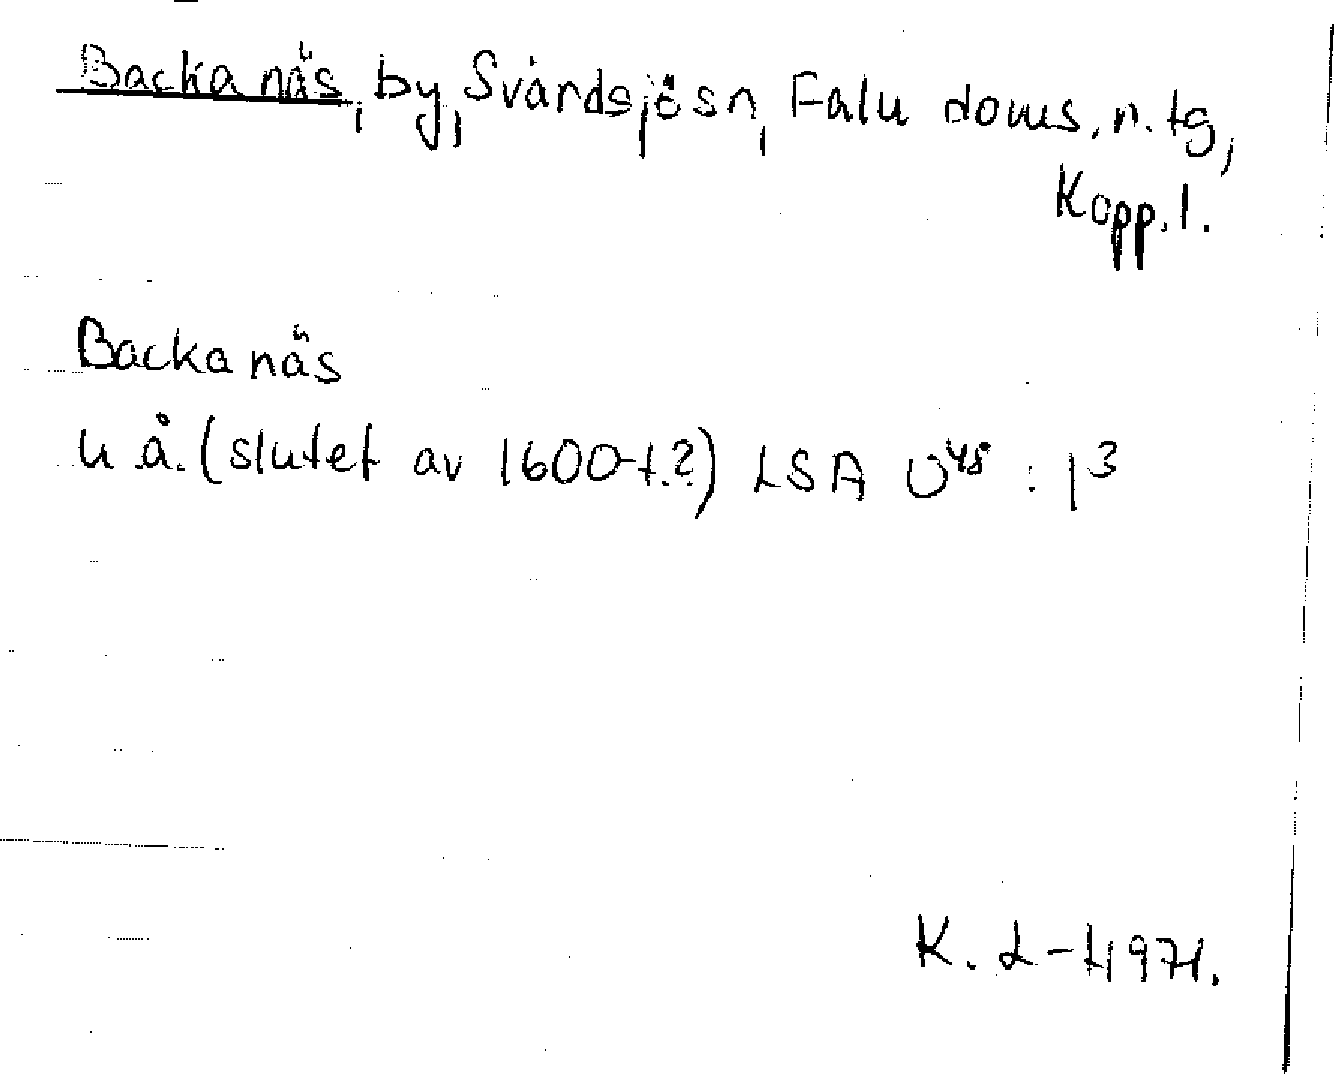 Backa näs, by, Svärdsjö sn, Falu doms. n. tg,
Kopp. l.
Backa näs
u å. (slutet av 1600-t.?) LSA U⁴⁸ : 1³
K. L-H 1971.